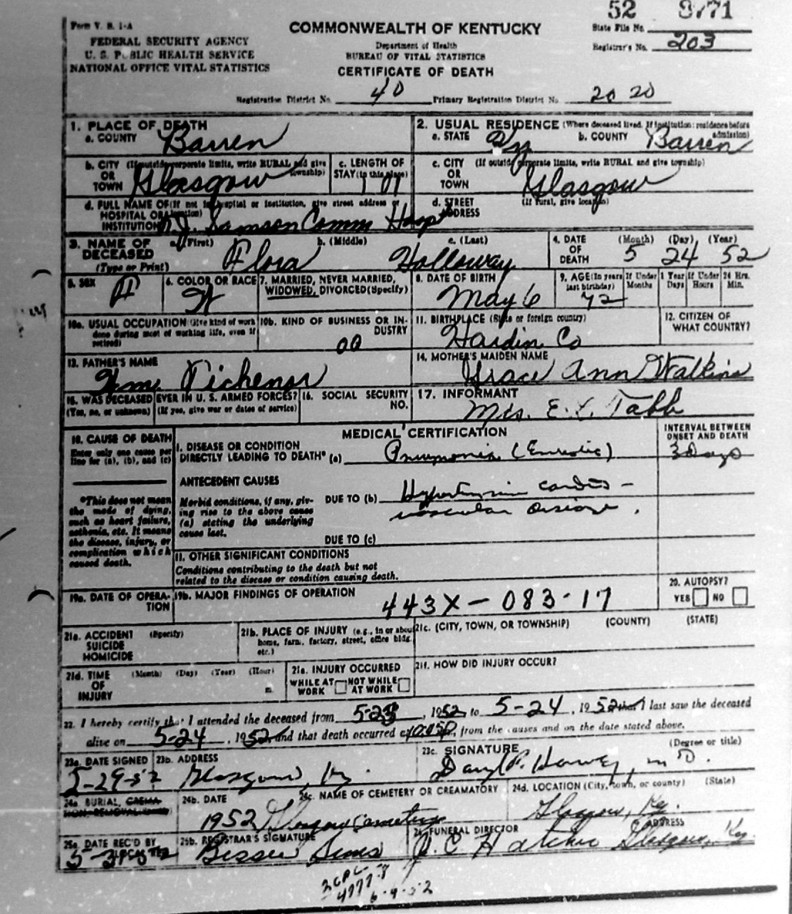 52 9771
Form V. S. 1-A
COMMONWEALTH OF KENTUCKY
State File No.
FEDERAL SECURITY AGENCY
Department of Health
Registrar's No. 203
U. S. PUBLIC HEALTH SERVICE
BUREAU OF VITAL STATISTICS
NATIONAL OFFICE VITAL STATISTICS
CERTIFICATE OF DEATH
Registration District No. 40 Primary Registration District No. 2020
1. PLACE OF DEATH
a. COUNTY Barren
2. USUAL RESIDENCE (Where deceased lived. If institution: residence before admission)
a. STATE Ky b. COUNTY Barren
b. CITY (If outside corporate limits, write RURAL and give township)
OR
TOWN Glasgow
c. LENGTH OF
STAY (in this place)
c. CITY (If outside corporate limits, write RURAL and give township)
OR
TOWN Glasgow
d. FULL NAME OF (If not in hospital or institution, give street address or location)
HOSPITAL OR
INSTITUTION T.J. Samson Comm Hosp
d. STREET (If rural, give location)
ADDRESS
3. NAME OF DECEASED
(Type or Print)
a. (First) b. (Middle) c. (Last)
Flora Holloway
4. DATE OF DEATH (Month) (Day) (Year)
5 24 52
5. SEX F
6. COLOR OR RACE W
7. MARRIED, NEVER MARRIED,
WIDOWED, DIVORCED (Specify)
8. DATE OF BIRTH
May 6
9. AGE (In years last birthday) 72
If Under 1 Year Months Days
If Under 24 Hrs. Hours Min.
10a. USUAL OCCUPATION (Give kind of work done during most of working life, even if retired)
10b. KIND OF BUSINESS OR INDUSTRY
00
11. BIRTHPLACE (State or foreign country)
Hardin Co
12. CITIZEN OF
WHAT COUNTRY?
13. FATHER'S NAME
Tichenor
14. MOTHER'S MAIDEN NAME
Grace Ann Watkins
15. WAS DECEASED EVER IN U. S. ARMED FORCES?
(Yes, no, or unknown) (If yes, give war or dates of service)
16. SOCIAL SECURITY
NO.
17. INFORMANT
Mrs. E. Y. Tabb
18. CAUSE OF DEATH
Enter only one cause per
line for (a), (b), and (c)
MEDICAL CERTIFICATION
INTERVAL BETWEEN
ONSET AND DEATH
I. DISEASE OR CONDITION
DIRECTLY LEADING TO DEATH* (a) Pneumonia 3 Days
*This does not mean
the mode of dying,
such as heart failure,
asthenia, etc. It means
the disease, injury, or
complication which
caused death.
ANTECEDENT CAUSES
Morbid conditions, if any, giving rise to the above cause (a) stating the underlying cause last.
DUE TO (b) Hypertensive cardio-
vascular disease.
DUE TO (c)
II. OTHER SIGNIFICANT CONDITIONS
Conditions contributing to the death but not
related to the disease or condition causing death.
19a. DATE OF OPERATION
19b. MAJOR FINDINGS OF OPERATION
443X-083-17
20. AUTOPSY?
YES NO
21a. ACCIDENT (Specify)
SUICIDE
HOMICIDE
21b. PLACE OF INJURY (e.g., in or about home, farm, factory, street, office bldg. etc.)
21c. (CITY, TOWN, OR TOWNSHIP) (COUNTY) (STATE)
21d. TIME (Month) (Day) (Year) (Hour)
OF
INJURY m.
21e. INJURY OCCURRED
WHILE AT WORK NOT WHILE AT WORK
21f. HOW DID INJURY OCCUR?
22. I hereby certify that I attended the deceased from 5-23, 1952 to 5-24, 1952 that I last saw the deceased
alive on 5-24, 1952 and that death occurred at, from the causes and on the date stated above.
23a. DATE SIGNED
5-29-52
23b. ADDRESS
Glasgow, Ky.
23c. SIGNATURE (Degree or title)
Daryl P. Harvey, M.D.
24a. BURIAL, CREMATION, REMOVAL
24b. DATE
1952
24c. NAME OF CEMETERY OR CREAMATORY
Glasgow Cemetery
24d. LOCATION (City, town, or county) (State)
Glasgow, Ky.
25a. DATE REC'D BY
25b. REGISTRAR'S SIGNATURE
Bessie Sims
26. FUNERAL DIRECTOR ADDRESS
Glasgow, Ky.
6-9-52